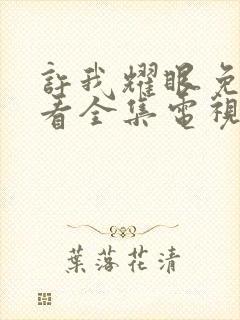 許我耀眼免
看全集電視
葉落花清